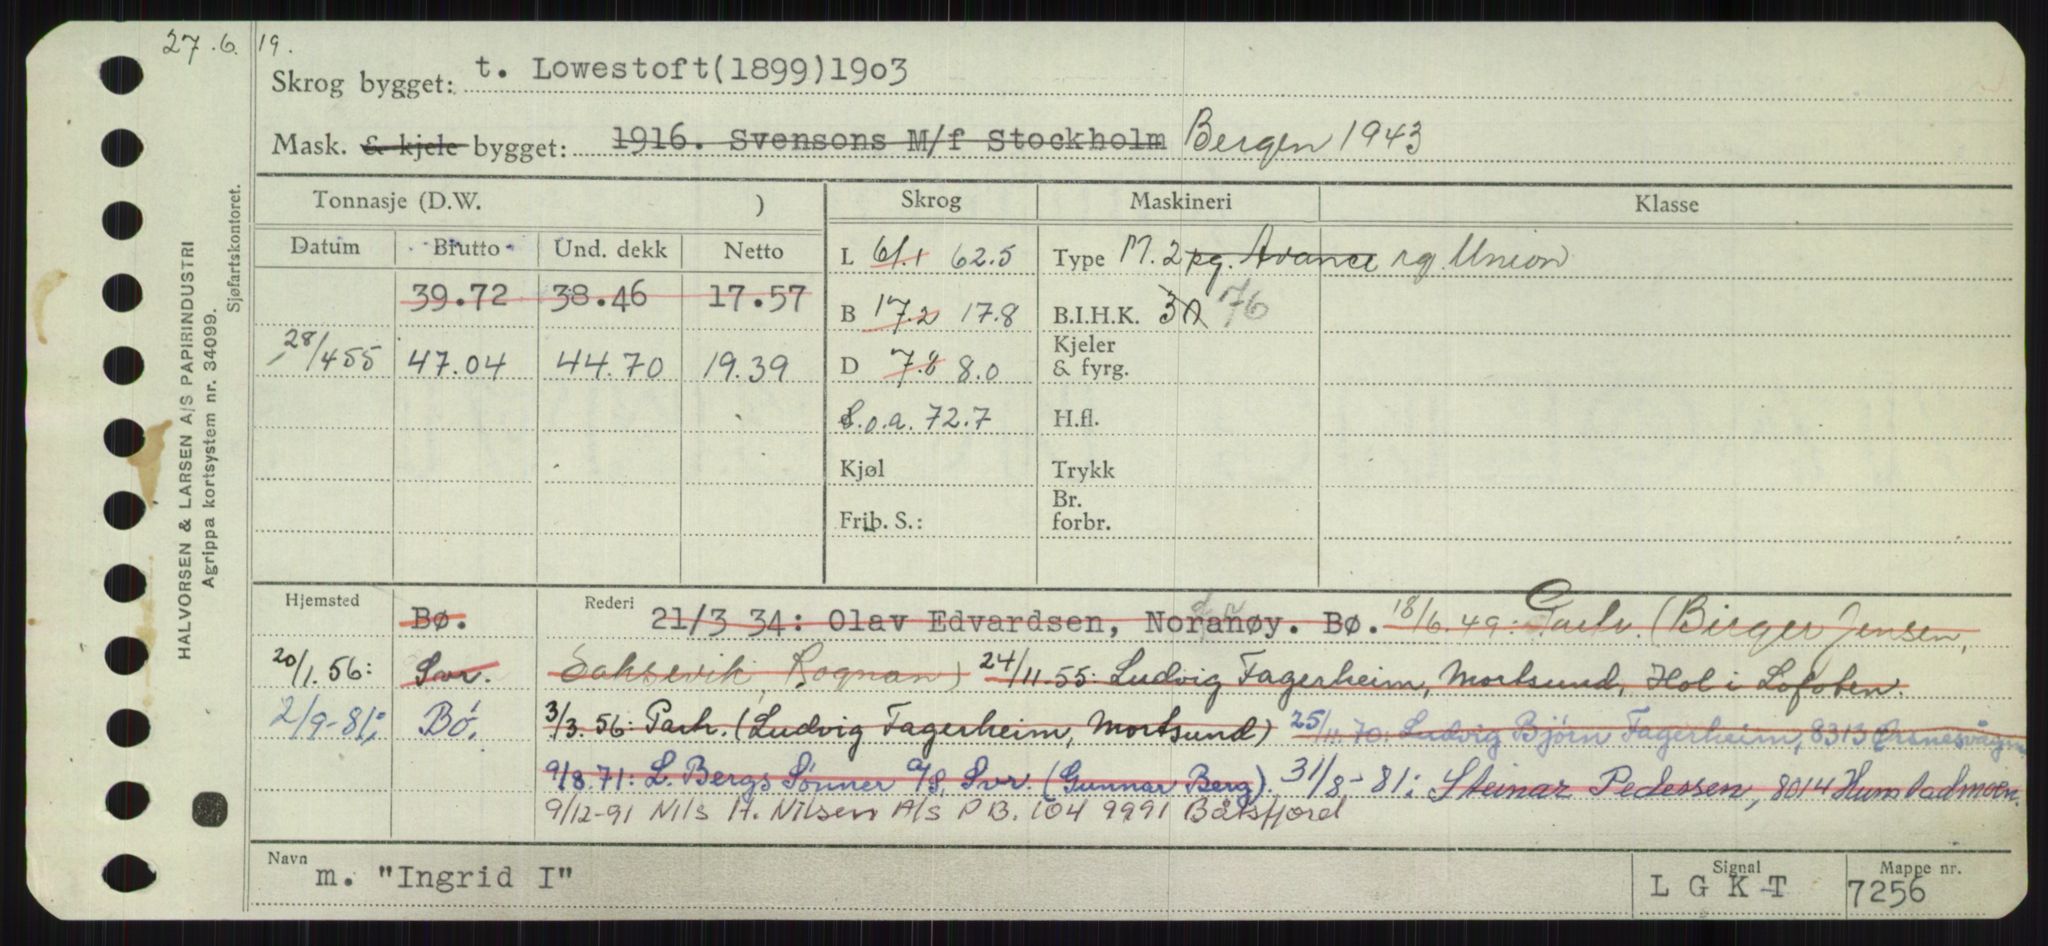 27.6. 19.
Skrog bygget: t. Lowestoft(1899)1903
Mask. & kjele bygget: 1916. Svensons M/f Stockholm Bergen 1943
HALVORSEN & LARSEN A/S PAPIRINDUSTRI
Agrippa kortsystem nr. 34099.
Sjøfartskontoret.
Tonnasje (D.W. ) Skrog Maskineri Klasse
Datum Brutto Und. dekk Netto
L 61.1 62.5 Type M. 2 pg. Avance rg. Union
39.72 38.46 17.57
B 17.2 17.8 B.I.H.K. 30 76
28/4 55 47.04 44.70 19.39
D 7.8 8.0 Kjeler & fyrg.
L.o.a. 72.7 H.fl.
Kjøl Trykk
Frib. S.: Br. forbr.
Hjemsted Bø. Rederi 21/3 34: Olav Edvardsen, Nordnøy. Bø. 18/6.49: Parh. (Birger Jensen,
20/1.56: Svr. Saksevik, Rognan) 24/11-55: Ludvig Fagerheim, Mortsund, Hol i Lofoten.
2/9-81: Bø. 3/3.56: Parh. (Ludvig Fagerheim, Mortsund) 25/11.70: Ludvig Bjørn Fagerheim, 8313
9/8.71: L. Bergs Sønner A/S, Svr. (Gunnar Berg) 31/8-81: Steinar Pedersen, 8014 Hunstadmoen.
9/12-91 Nils H. Nilsen A/S P.B. 104 9991 Båtsfjord
Navn m. "Ingrid I" Signal L G K T Mappe nr. 7256